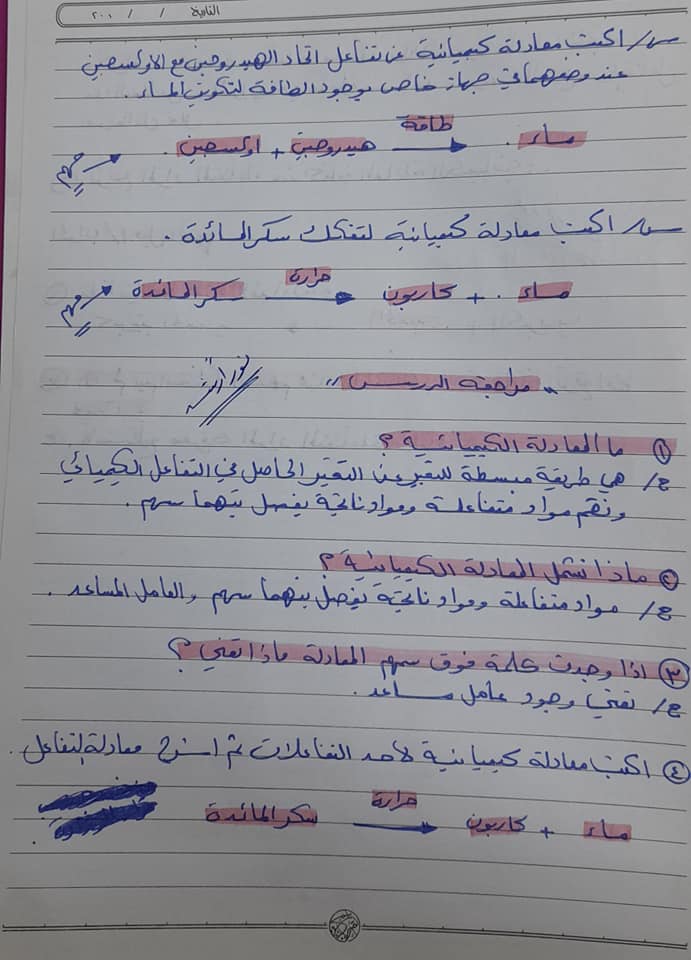 التاريخ / / ٢٠٠
س/ اكتب معادلة كيميائية عن تفاعل اتحاد الهيدروجين مع الاوكسجين
عند وضعهما في جهاز خاص بوجود الطاقة لتكوين الماء.
هيدروجين + اوكسجين طاقة ماء.
مهم
س/ اكتب معادلة كيميائية لتفكك سكر المائدة.
سكر المائدة حرارة كاربون + ماء.
مهم
"مراجعة الدرس"
① ما المعادلة الكيميائية؟
ج/ هي طريقة مبسطة للتعبير عن التغير الحاصل في التفاعل الكيميائي
وتضم مواد متفاعلة ومواد ناتجة يفصل بينهما سهم.
② ماذا تشمل المعادلة الكيميائية؟
ج/ مواد متفاعلة ومواد ناتجة يفصل بينهما سهم والعامل المساعد.
③ اذا وجدت كلمة فوق سهم المعادلة ماذا تعني؟
ج/ تعني وجود عامل مساعد.
④ اكتب معادلة كيميائية لأحد التفاعلات ثم اشرح معادلة التفاعل.
سكر المائدة حرارة كاربون + ماء